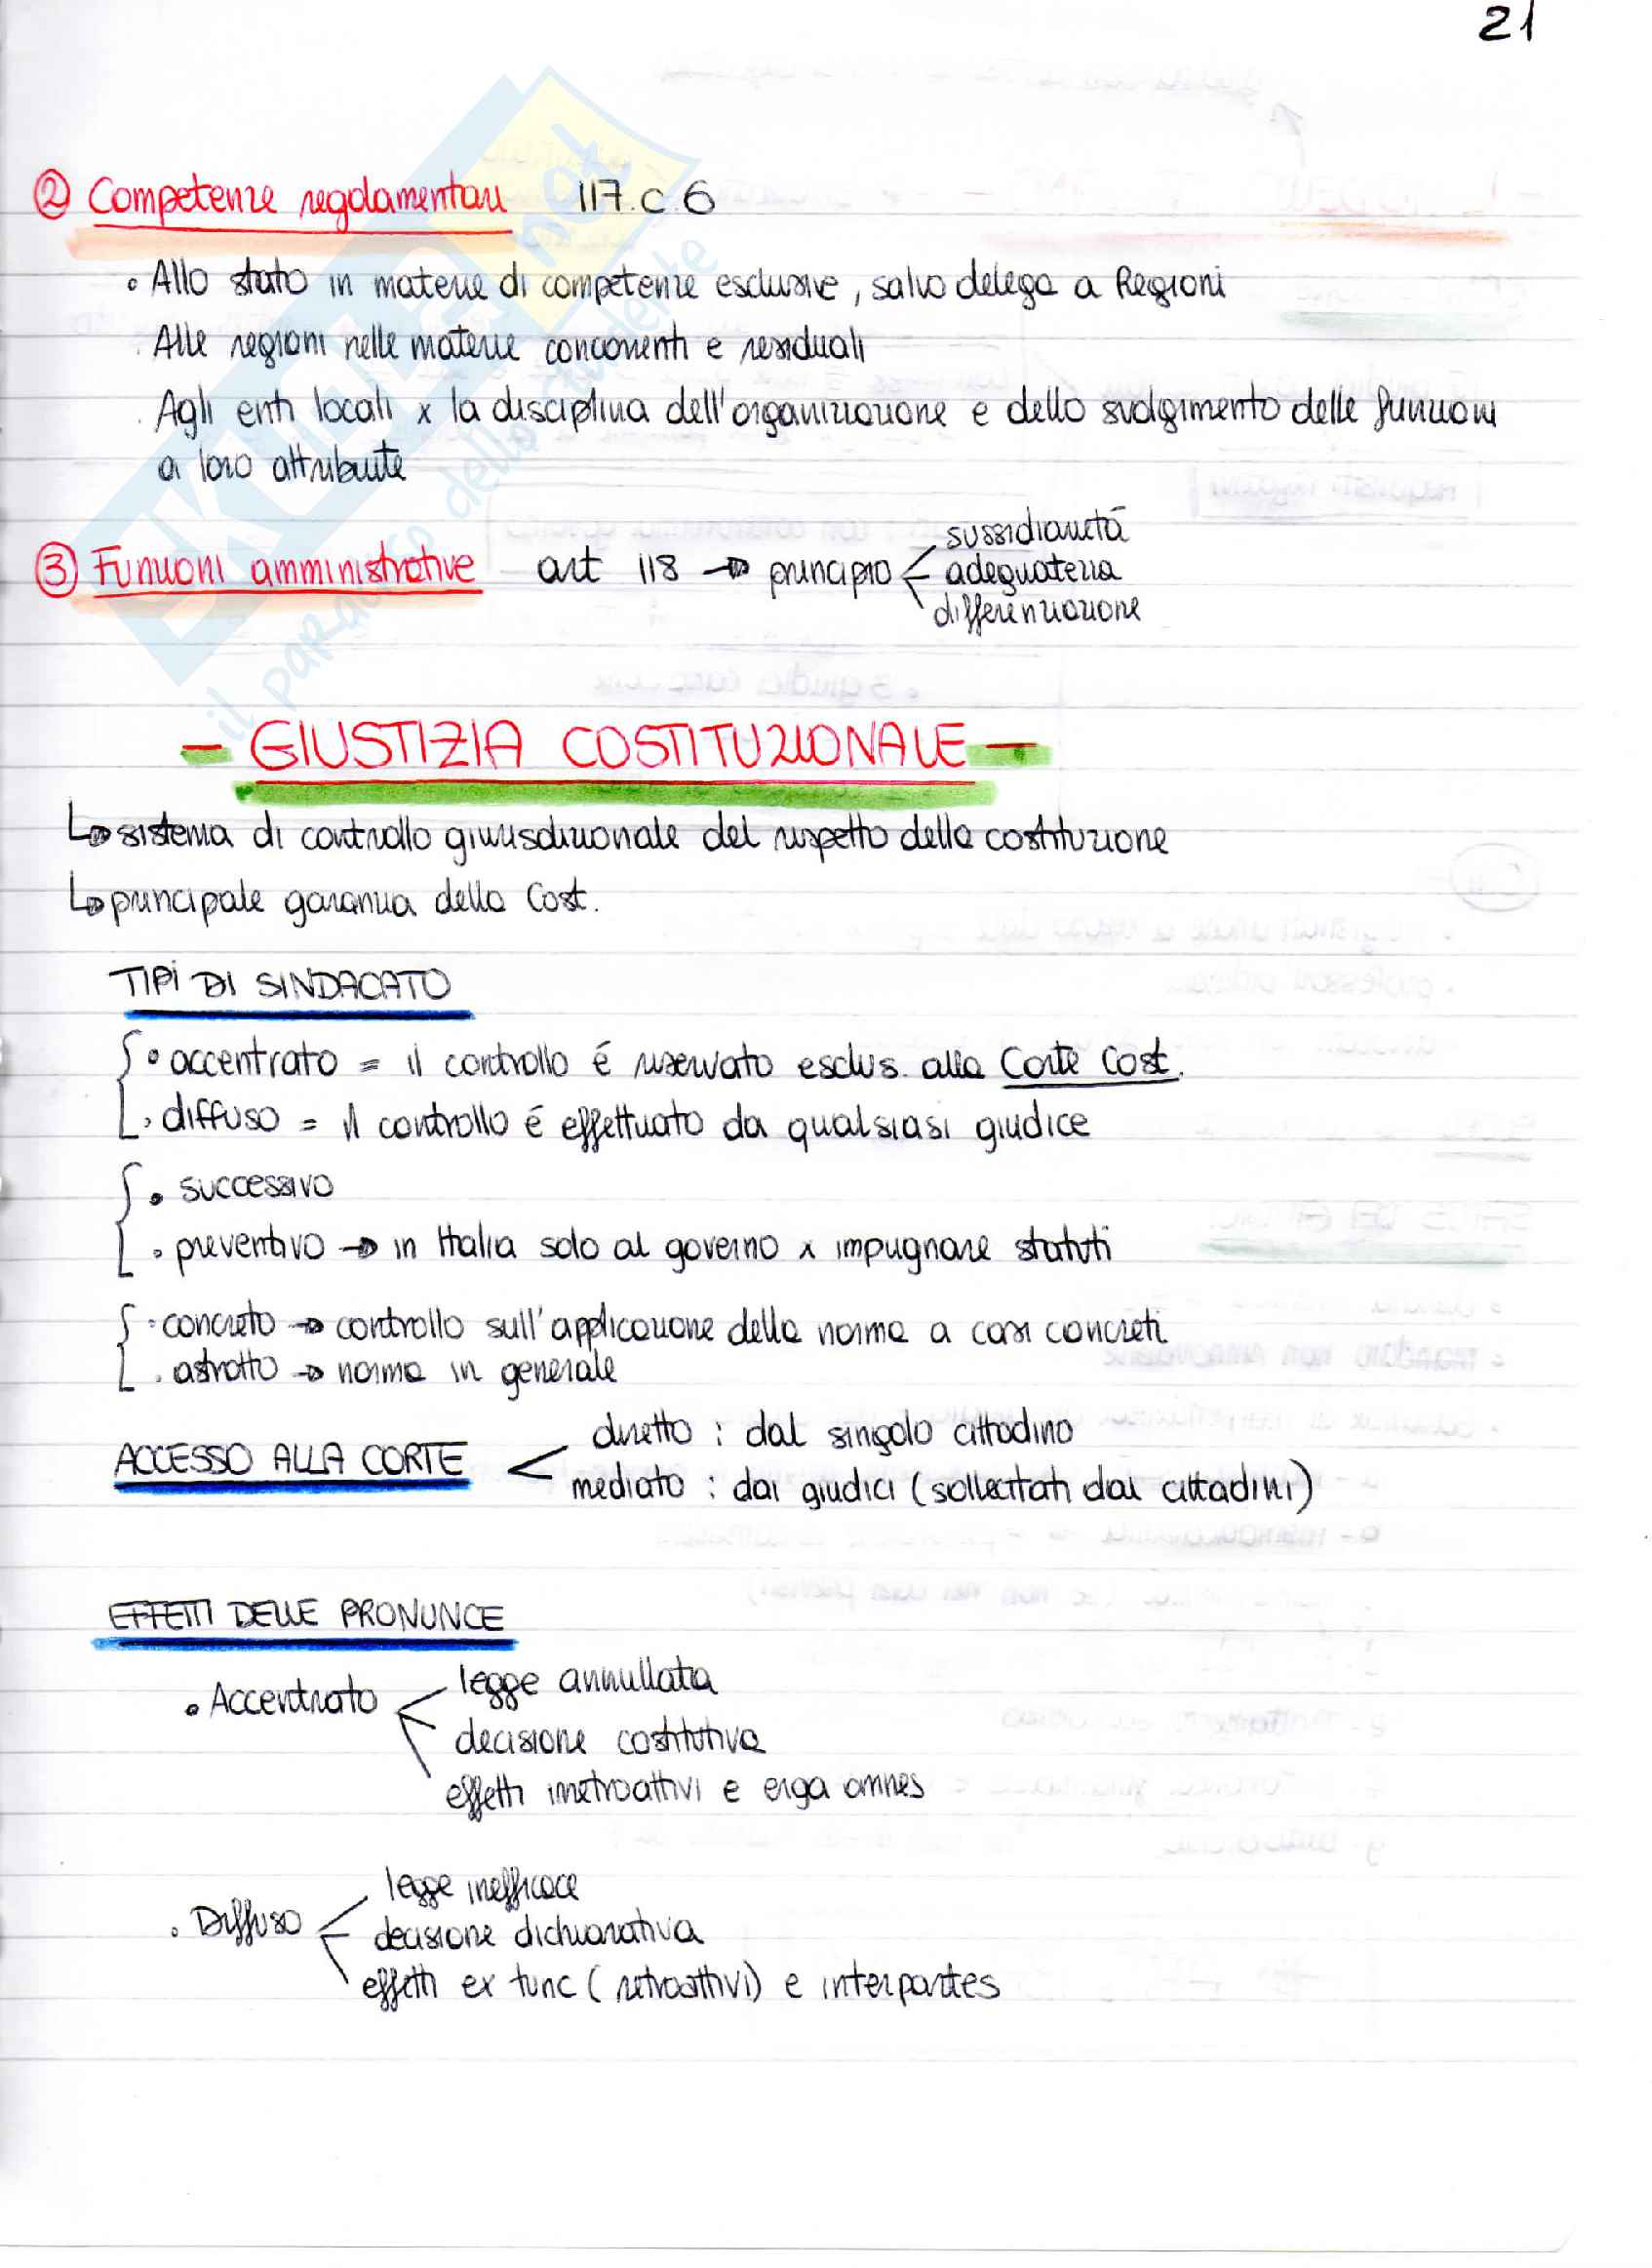 21
② Competenze regolamentari 117.c.6
• Allo stato in materie di competenze esclusive, salvo delega a Regioni
. Alle regioni nelle materie concorrenti e residuali
. Agli enti locali x la disciplina dell'organizzazione e dello svolgimento delle funzioni
a loro attribuite
③ Funzioni amministrative art 118 → principio < sussidiarietà
adeguatezza
differenziazione
- GIUSTIZIA COSTITUZIONALE -
↳ sistema di controllo giurisdizionale del rispetto della costituzione
↳ principale garanzia della Cost.
TIPI DI SINDACATO
• accentrato = il controllo é riservato esclus. alla Corte Cost.
• diffuso = il controllo é effettuato da qualsiasi giudice
• successivo
• preventivo → in Italia solo al governo x impugnare statuti
• concreto → controllo sull'applicazione della norma a casi concreti
. astratto → norma in generale
ACCESSO ALLA CORTE < diretto : dal singolo cittadino
mediato : dai giudici (sollecitati dai cittadini)
EFFETTI DELLE PRONUNCE
• Accentrato < legge annullata
decisione costitutiva
effetti irretroattivi e erga omnes
• Diffuso < legge inefficace
decisione dichiarativa
effetti ex tunc (retroattivi) e interpartes
SKUOLA.not
il paradiso dello studente